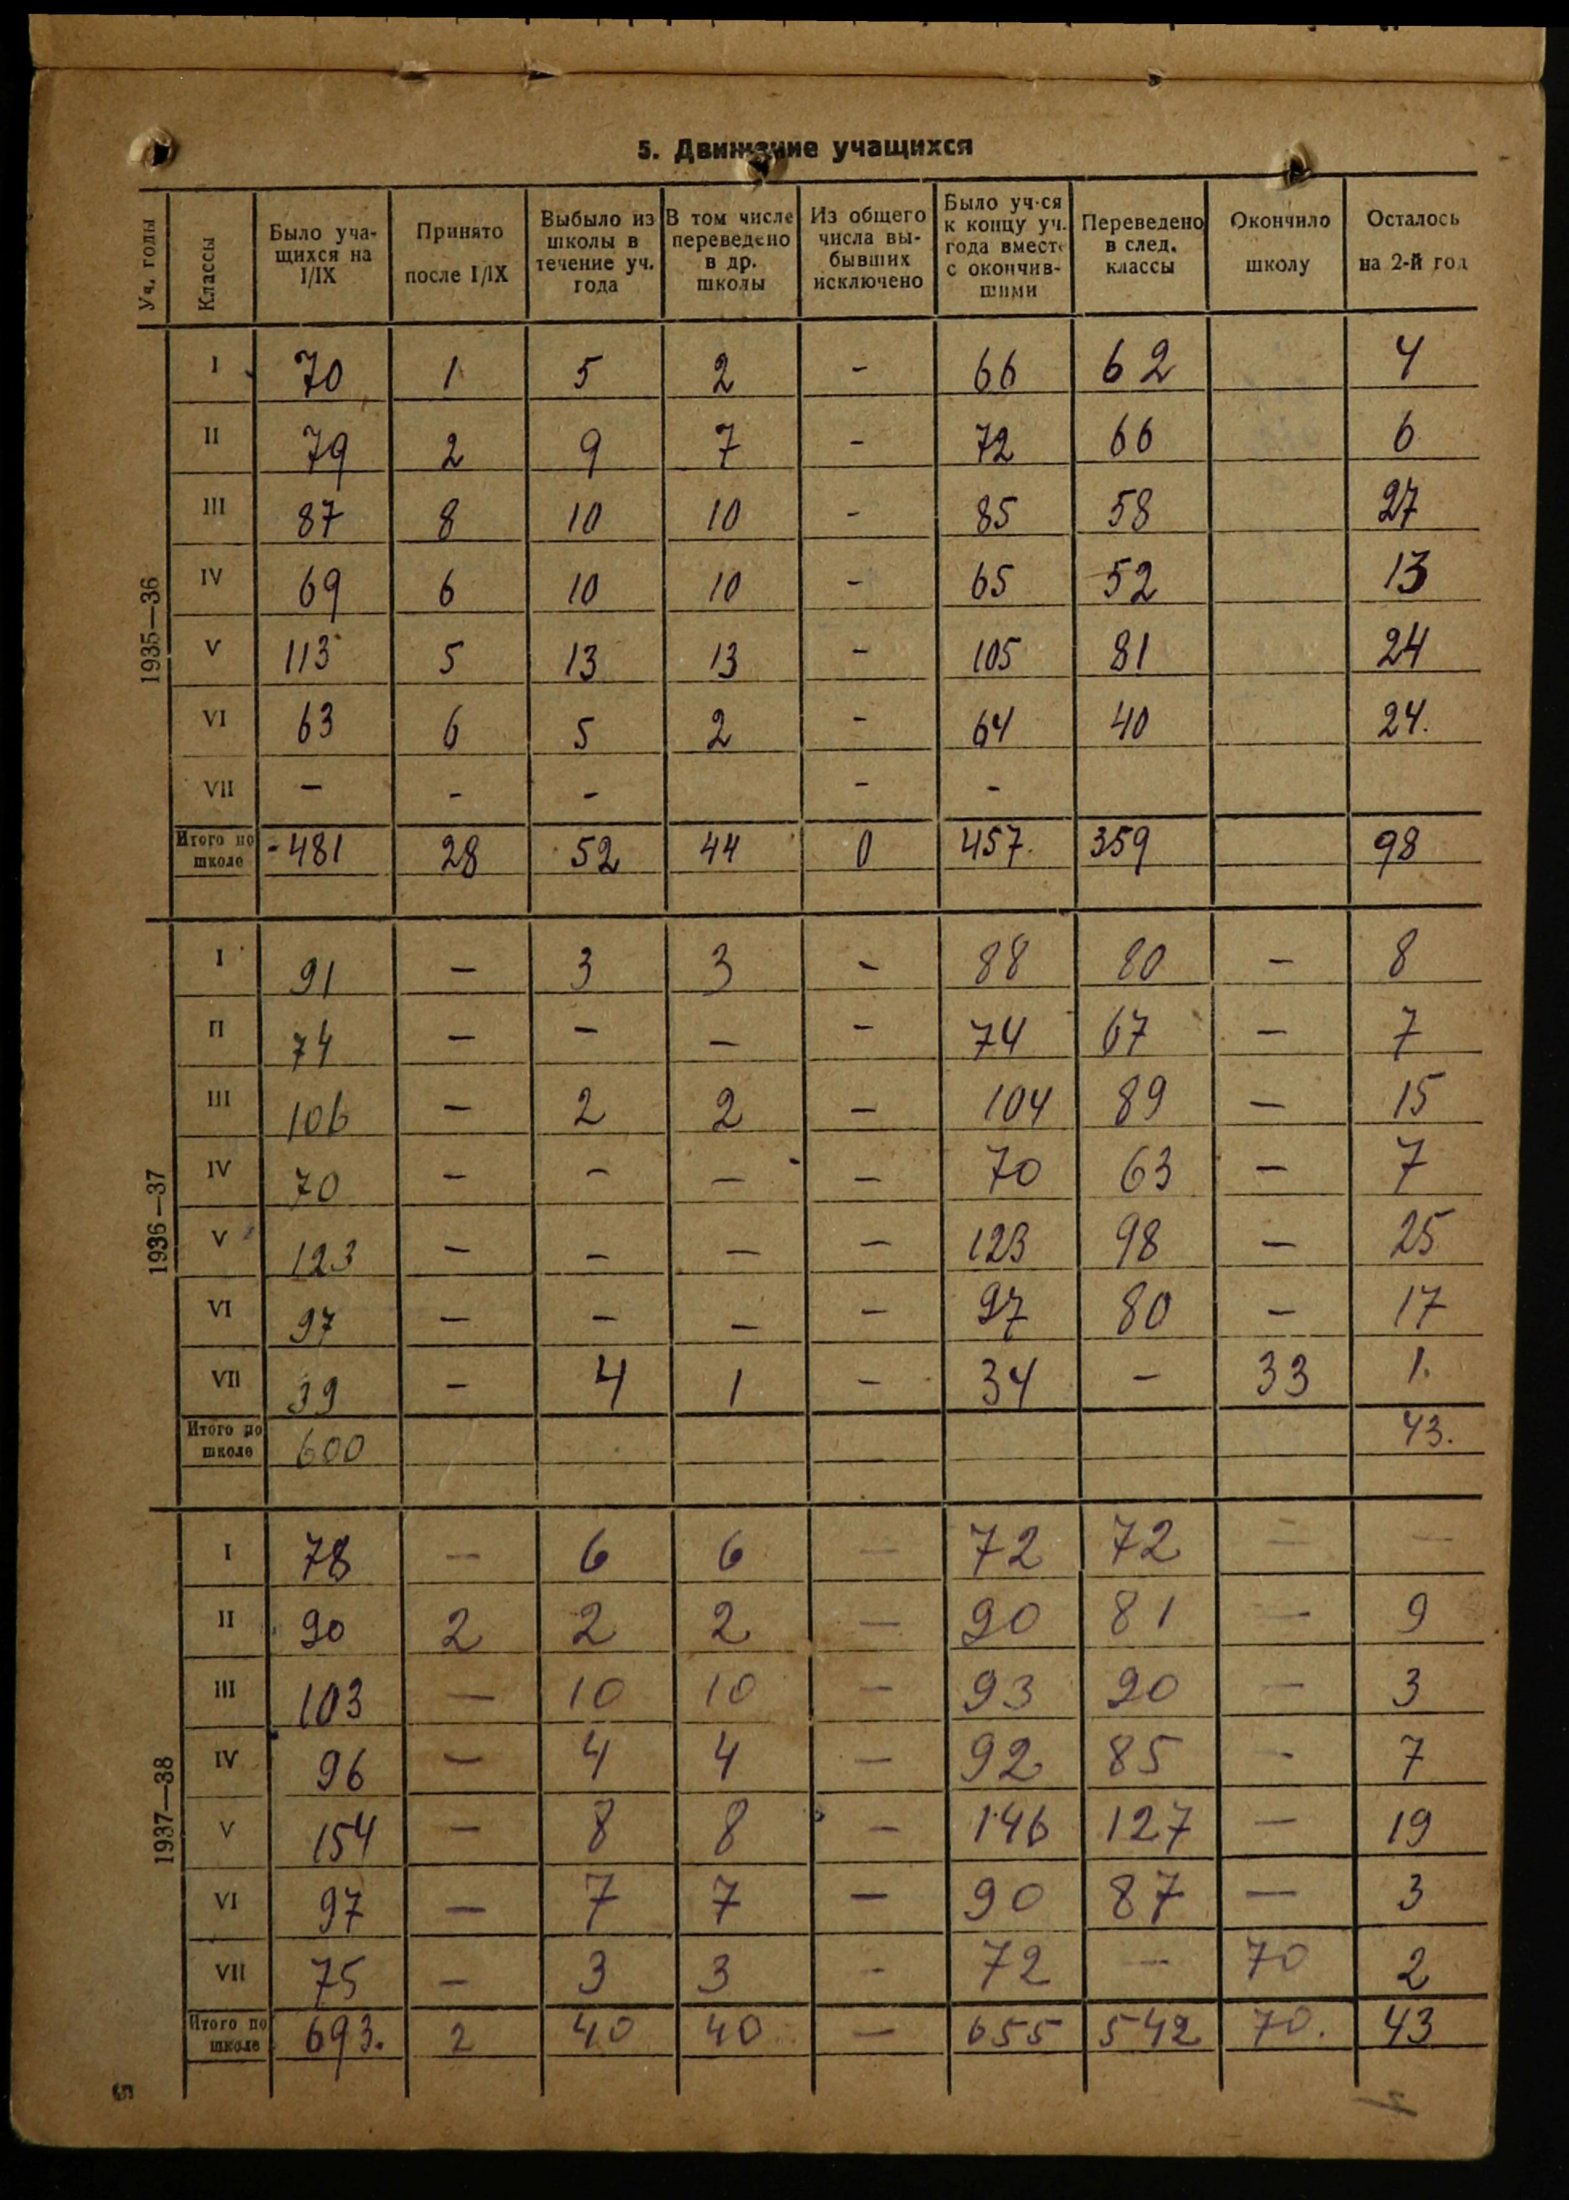 5. Движение учащихся
Уч. годы | Классы | Было уча-щихся на I/IX | Принято после I/IX | Выбыло из школы в течение уч. года | В том числе переведено в др. школы | Из общего числа вы-бывших исключено | Было уч-ся к концу уч. года вместе с окончив-шими | Переведено в след. классы | Окончило школу | Осталось на 2-й год
1935—36
I | 70 | 1 | 5 | 2 | - | 66 | 62 | | 4
II | 79 | 2 | 9 | 7 | - | 72 | 66 | | 6
III | 87 | 8 | 10 | 10 | - | 85 | 58 | | 27
IV | 69 | 6 | 10 | 10 | - | 65 | 52 | | 13
V | 113 | 5 | 13 | 13 | - | 105 | 81 | | 24
VI | 63 | 6 | 5 | 2 | - | 64 | 40 | | 24.
VII | - | - | - | | - | - | | |
Итого по школе | 481 | 28 | 52 | 44 | 0 | 457. | 359 | | 98
1936—37
I | 91 | — | 3 | 3 | - | 88 | 80 | — | 8
II | 74 | — | — | — | — | 74 | 67 | — | 7
III | 106 | — | 2 | 2 | — | 104 | 89 | — | 15
IV | 70 | — | — | — | — | 70 | 63 | — | 7
V | 123 | — | — | — | — | 123 | 98 | — | 25
VI | 97 | — | — | — | — | 97 | 80 | — | 17
VII | 39 | — | 4 | 1 | — | 34 | - | 33 | 1.
Итого по школе | 600 | | | | | | | | 43.
1937—38
I | 78 | — | 6 | 6 | — | 72 | 72 | — | —
II | 90 | 2 | 2 | 2 | — | 90 | 81 | — | 9
III | 103 | — | 10 | 10 | — | 93 | 90 | — | 3
IV | 96 | — | 4 | 4 | — | 92 | 85 | - | 7
V | 154 | — | 8 | 8 | — | 146 | 127 | — | 19
VI | 97 | — | 7 | 7 | — | 90 | 87 | — | 3
VII | 75 | — | 3 | 3 | - | 72 | — | 70 | 2
Итого по школе | 693. | 2 | 40 | 40 | — | 655 | 542 | 70. | 43